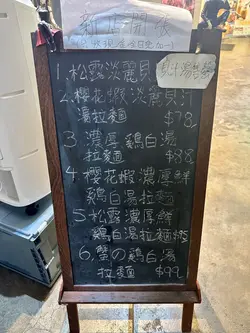 新店開張
1.松露淡麗貝
2.櫻花蝦淡麗貝汁
湯拉麵 $78
3.濃厚鷄白湯
拉麵 $88
4.櫻花蝦濃厚鮮
鷄白湯拉麵
5.松露濃厚鮮
鷄白湯拉麵
6.蟹の鷄白湯
拉麵 $99